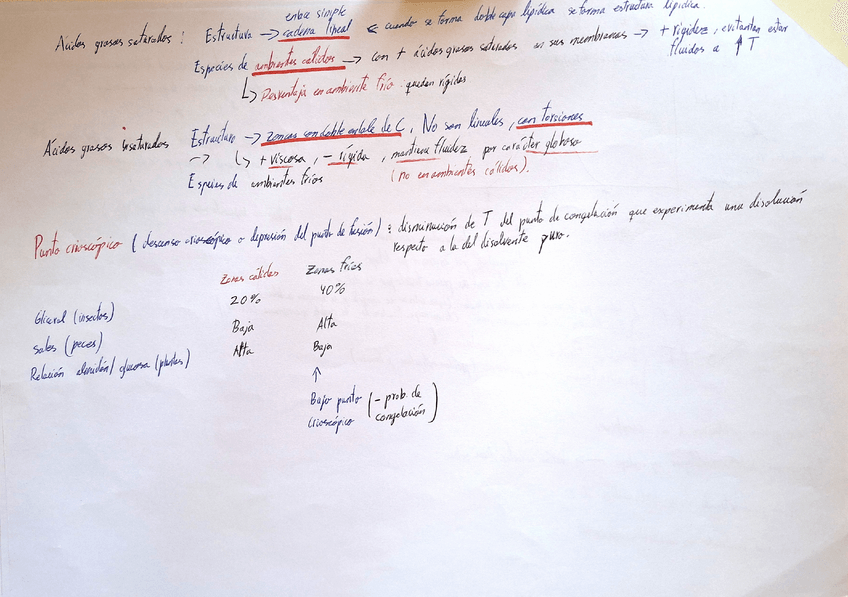 enlace simple
Ácidos grasos saturados : Estructura → cadena lineal ← cuando se forma doble capa lipídica se forma estructura lipídica.
Especies de ambientes cálidos → con + ácidos grasos saturados en sus membranas → + rigidez, evitan tan estar
fluidos a ↑ T
↳ Desventaja en ambiente frío quedan rígidos
Ácidos grasos insaturados Estructura → Zonas con doble enlace de C, No son lineales, con torsiones
→ ↳ + viscosa, - rígida, mantiene fluidez por carácter globoso
Especies de ambientes fríos (no en ambientes cálidos).
Punto crioscópico (descenso crioscópico o depresión del punto de fusión) : disminución de T del punto de congelación que experimenta una disolución
respecto a la del disolvente puro.
Zonas cálidas Zonas frías
Glicerol (insectos) 20% 40%
Sales (peces) Baja Alta
Relación almidón/glucosa (plantas) Alta Baja
↑
Bajo punto (- prob. de
crioscópico congelación)